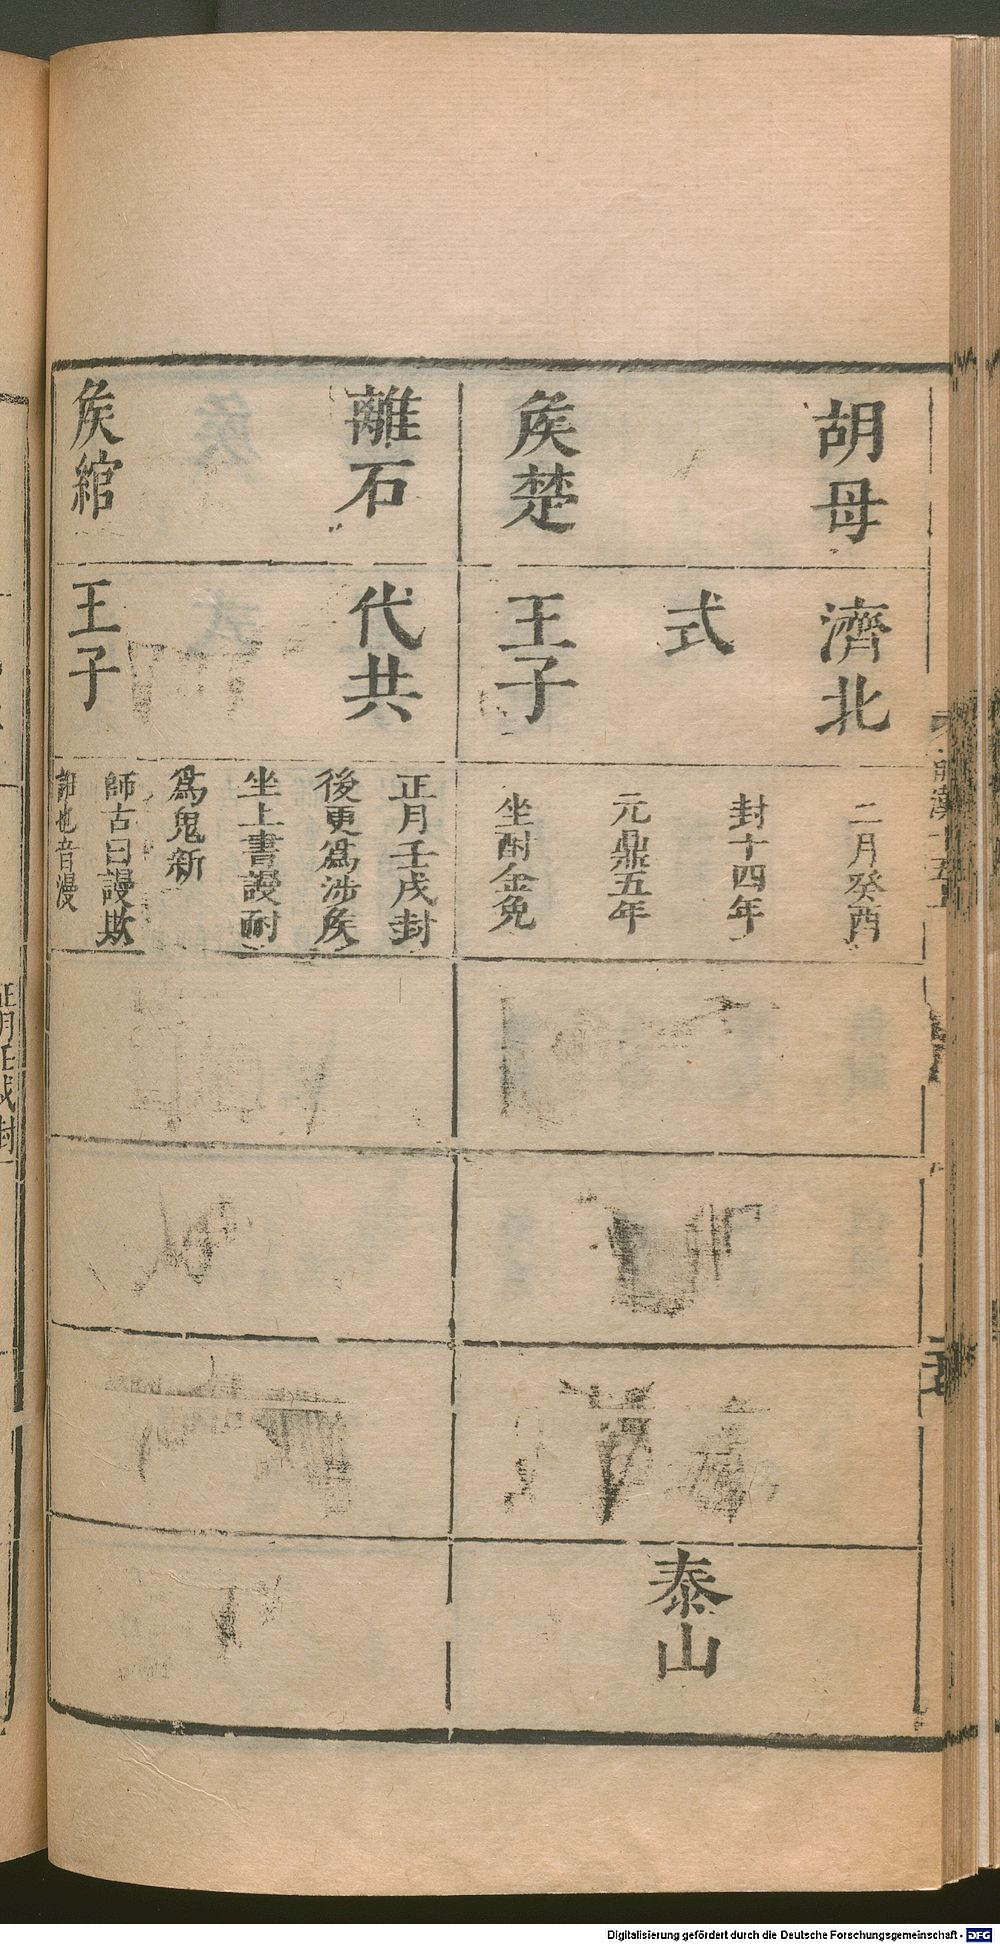 胡母
侯楚
濟北
式
王子
二月癸酉
封十四年
元鼎五年
坐酎金免
泰山
離石
侯綰
代共
王子
正月壬戌封
後更爲涉侯
坐上書謾耐
爲鬼新
師古曰謾欺
誑也音漫
正月壬戌封
Digitalisierung gefördert durch die Deutsche Forschungsgemeinschaft - DFG